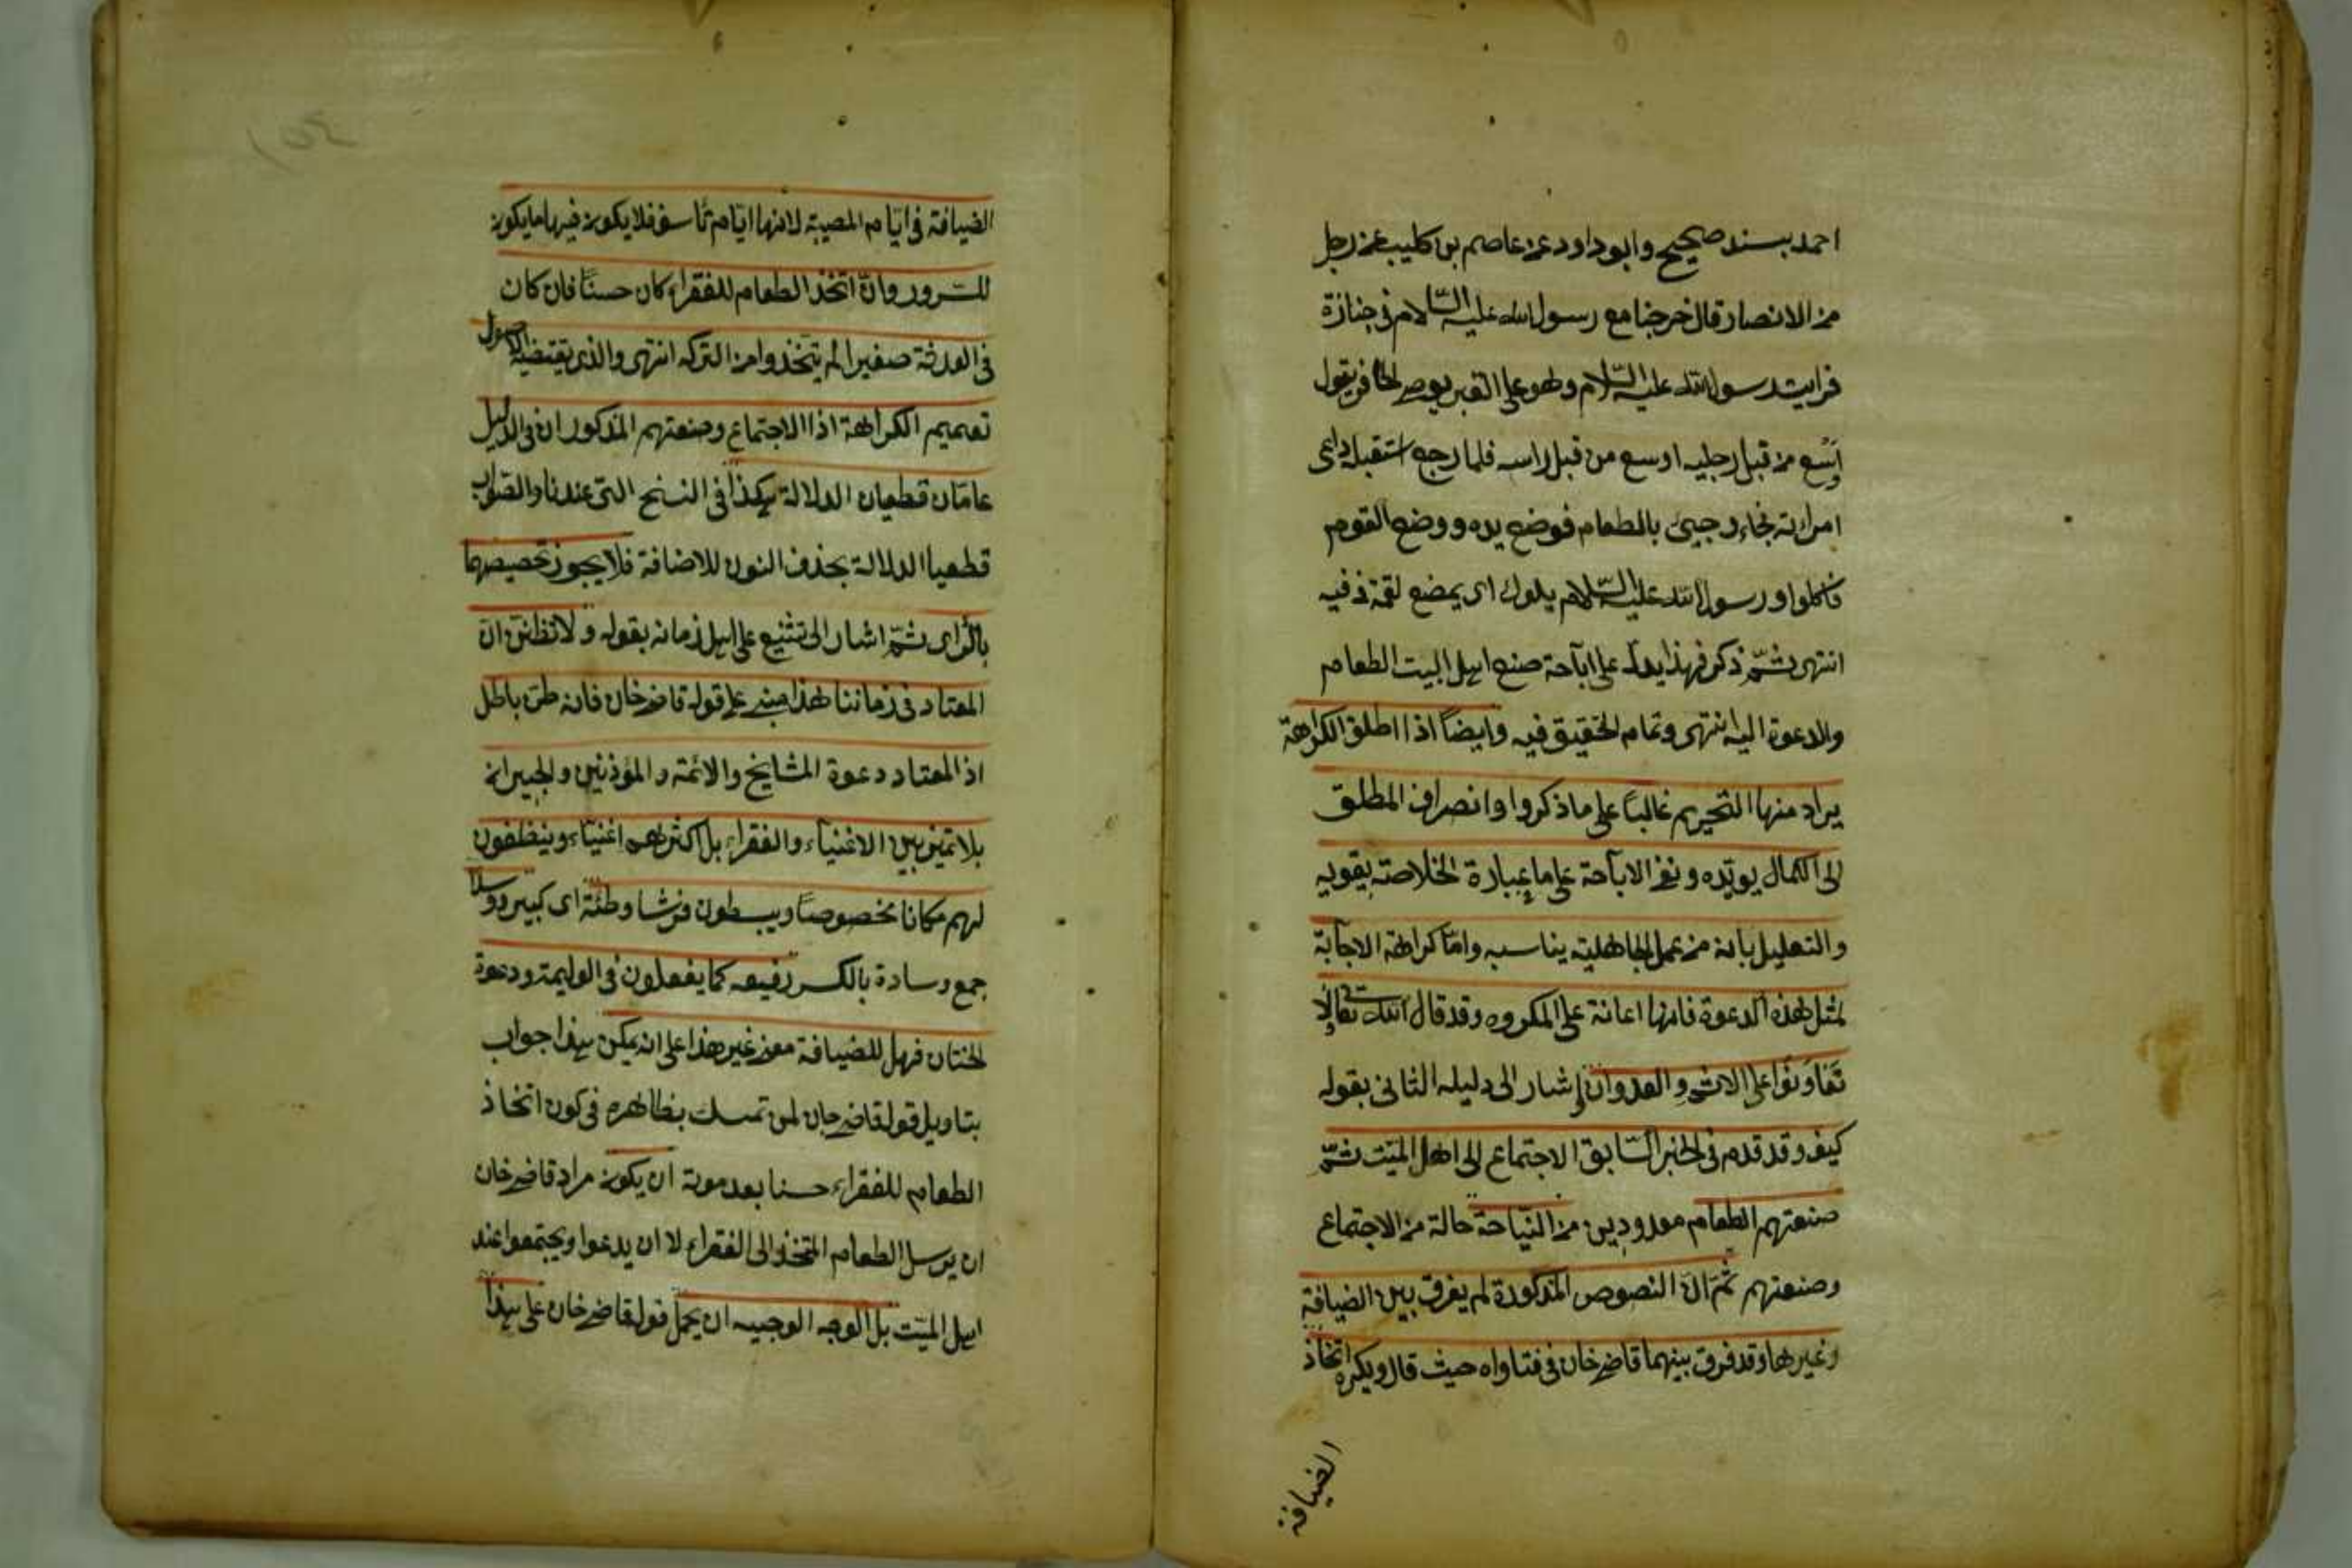 احمد بسند صحيح وابو داود عن عاصم بن كليب عن رجل
من الانصار قال خرجنا مع رسول الله عليه السّلام فى جنازة
فرايت رسول الله عليه السّلام وهو على القبر يوصى الحافر يقول
اوسع من قبل رجليه اوسع من قبل راسه فلما رجع استقبله داعى
امرأته فجاء وجيئ بالطعام فوضع يده ووضع القوم
فاكلوا ورسول الله عليه السّلام يلوك اى يمضع لقمة فى فيه
انتهى ثمّ ذكر فهذا يدل على اباحة صنع اهل البيت الطعام
والدعوة اليه انتهى وتمام التحقيق فيه وايضاً اذا اطلق الكراهة
يراد منها التحريم غالباً على ما ذكروا وانصراف المطلق
الى الكمال يويّده ونفى الاباحة على ما عبارة الخلاصة يقويه
والتعليل بانه من عمل الجاهلية يناسبه وامّا كراهة الاجابة
لمثل هذه الدعوة فانها اعانة على المكروه وقد قال الله تعالى لا
تَعَاوَنُوا على الاثم والعدوان اشار الى دليله الثانى بقوله
كيف وقد قدم فى الخبر السّابق الاجتماع الى اهل الميّت ثمّ
صنعتهم الطعام معدودين من النّياحة حالة من الاجتماع
وصنعتهم ثمّ انّ النصوص المذكورة لم يفرق بين الضيافة
وغيرها وقد فرق بينهما قاضى خان فى فتاواه حيث قال ويكره اتخاذ
الضيافة
الضيافة فى ايّام المصيبة لانها ايّام تأسف فلا يكون فيها ما يكون
للسّرور وان اتخذ الطعام للفقراء كان حسناً فان كان
فى الورثة صغير لم يتّخذوا من التركه انتهى والذى يقتضيه الاصول
تعميم الكراهة اذا الاجتماع وصنعتهم المذكوران فى الدليل
عامّان قطعيان الدلالة هكذا فى النسخ التى عندنا والصّواب
قطعيا الدلالة بحذف النون للاضافة فلا يجوز تخصيصهما
بالرّاى ثمّ اشار الى تشنيع على اهل زمانه بقوله ولا تظننّ انّ
المعتاد فى زماننا هذا مبنى على قول قاضى خان فانه ظنّ باطل
اذ المعتاد دعوة المشايخ والائمة والمؤذنين والجيران
بلا تميز بين الاغنياء والفقراء بل اكثرهم اغنياء وينظفون
لهم مكانا مخصوصاً ويبسطون فرشا وطئة اى كبير وسائد
جمع وسادة بالكسر رفيعه كما يفعلون فى الوليمة ودعوة
الختان فهل للضيافة معنى غير هذا على انه يمكن هذا جواب
بتاويل قول قاضى خان لمن تمسك بظاهره فى كون اتخاذ
الطعام للفقراء حسنا بعد موته ان يكون مراد قاضى خان
ان يرسل الطعام المتخذ الى الفقراء لا ان يدعوا ويجتمعوا عند
اهل الميّت بل الوجه الوجيه ان يحمل قول قاضى خان على هذا